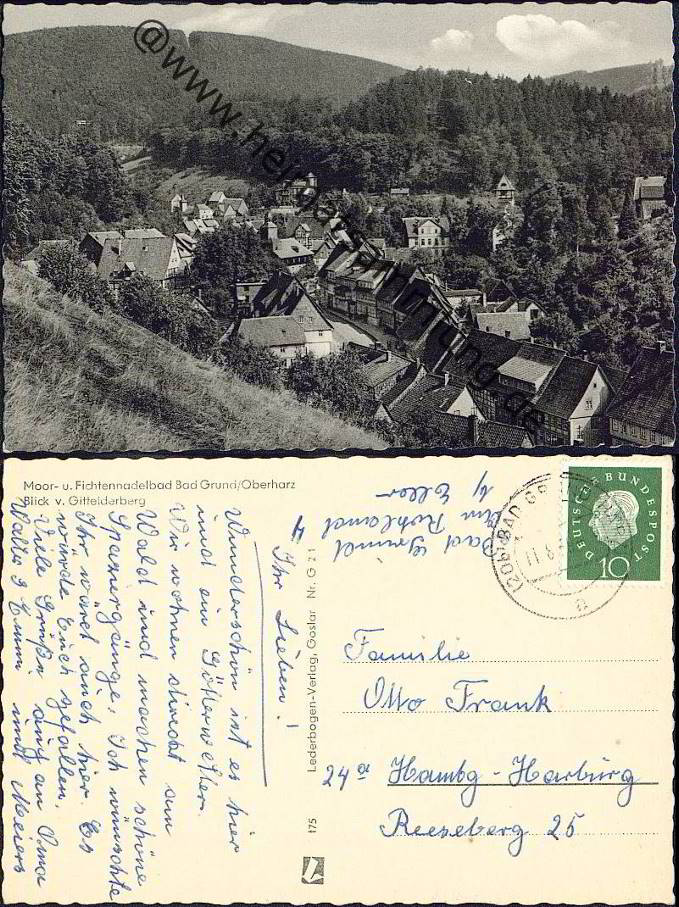 @www.heimatsammlung.de
Moor- u. Fichtennadelbad Bad Grund/Oberharz
Blick v. Gittelderberg
Ihr Lieben!
Wunderschön ist es hier
und ein Götterwetter.
Wir wohnen direkt am
Wald und machen schöne
Spaziergänge. Ich wünschte
Ihr wäret auch hier. Es
würde Euch gefallen.
Viele Grüße auch an Oma
und Meiers
Bad Grund
Lederbogen-Verlag, Goslar Nr. G 21
175
(20b) BAD GR
11.8.
a
DEUTSCHE BUNDESPOST
10
Familie
Otto Frank
24a Hambg-Harburg
Reeseberg 25